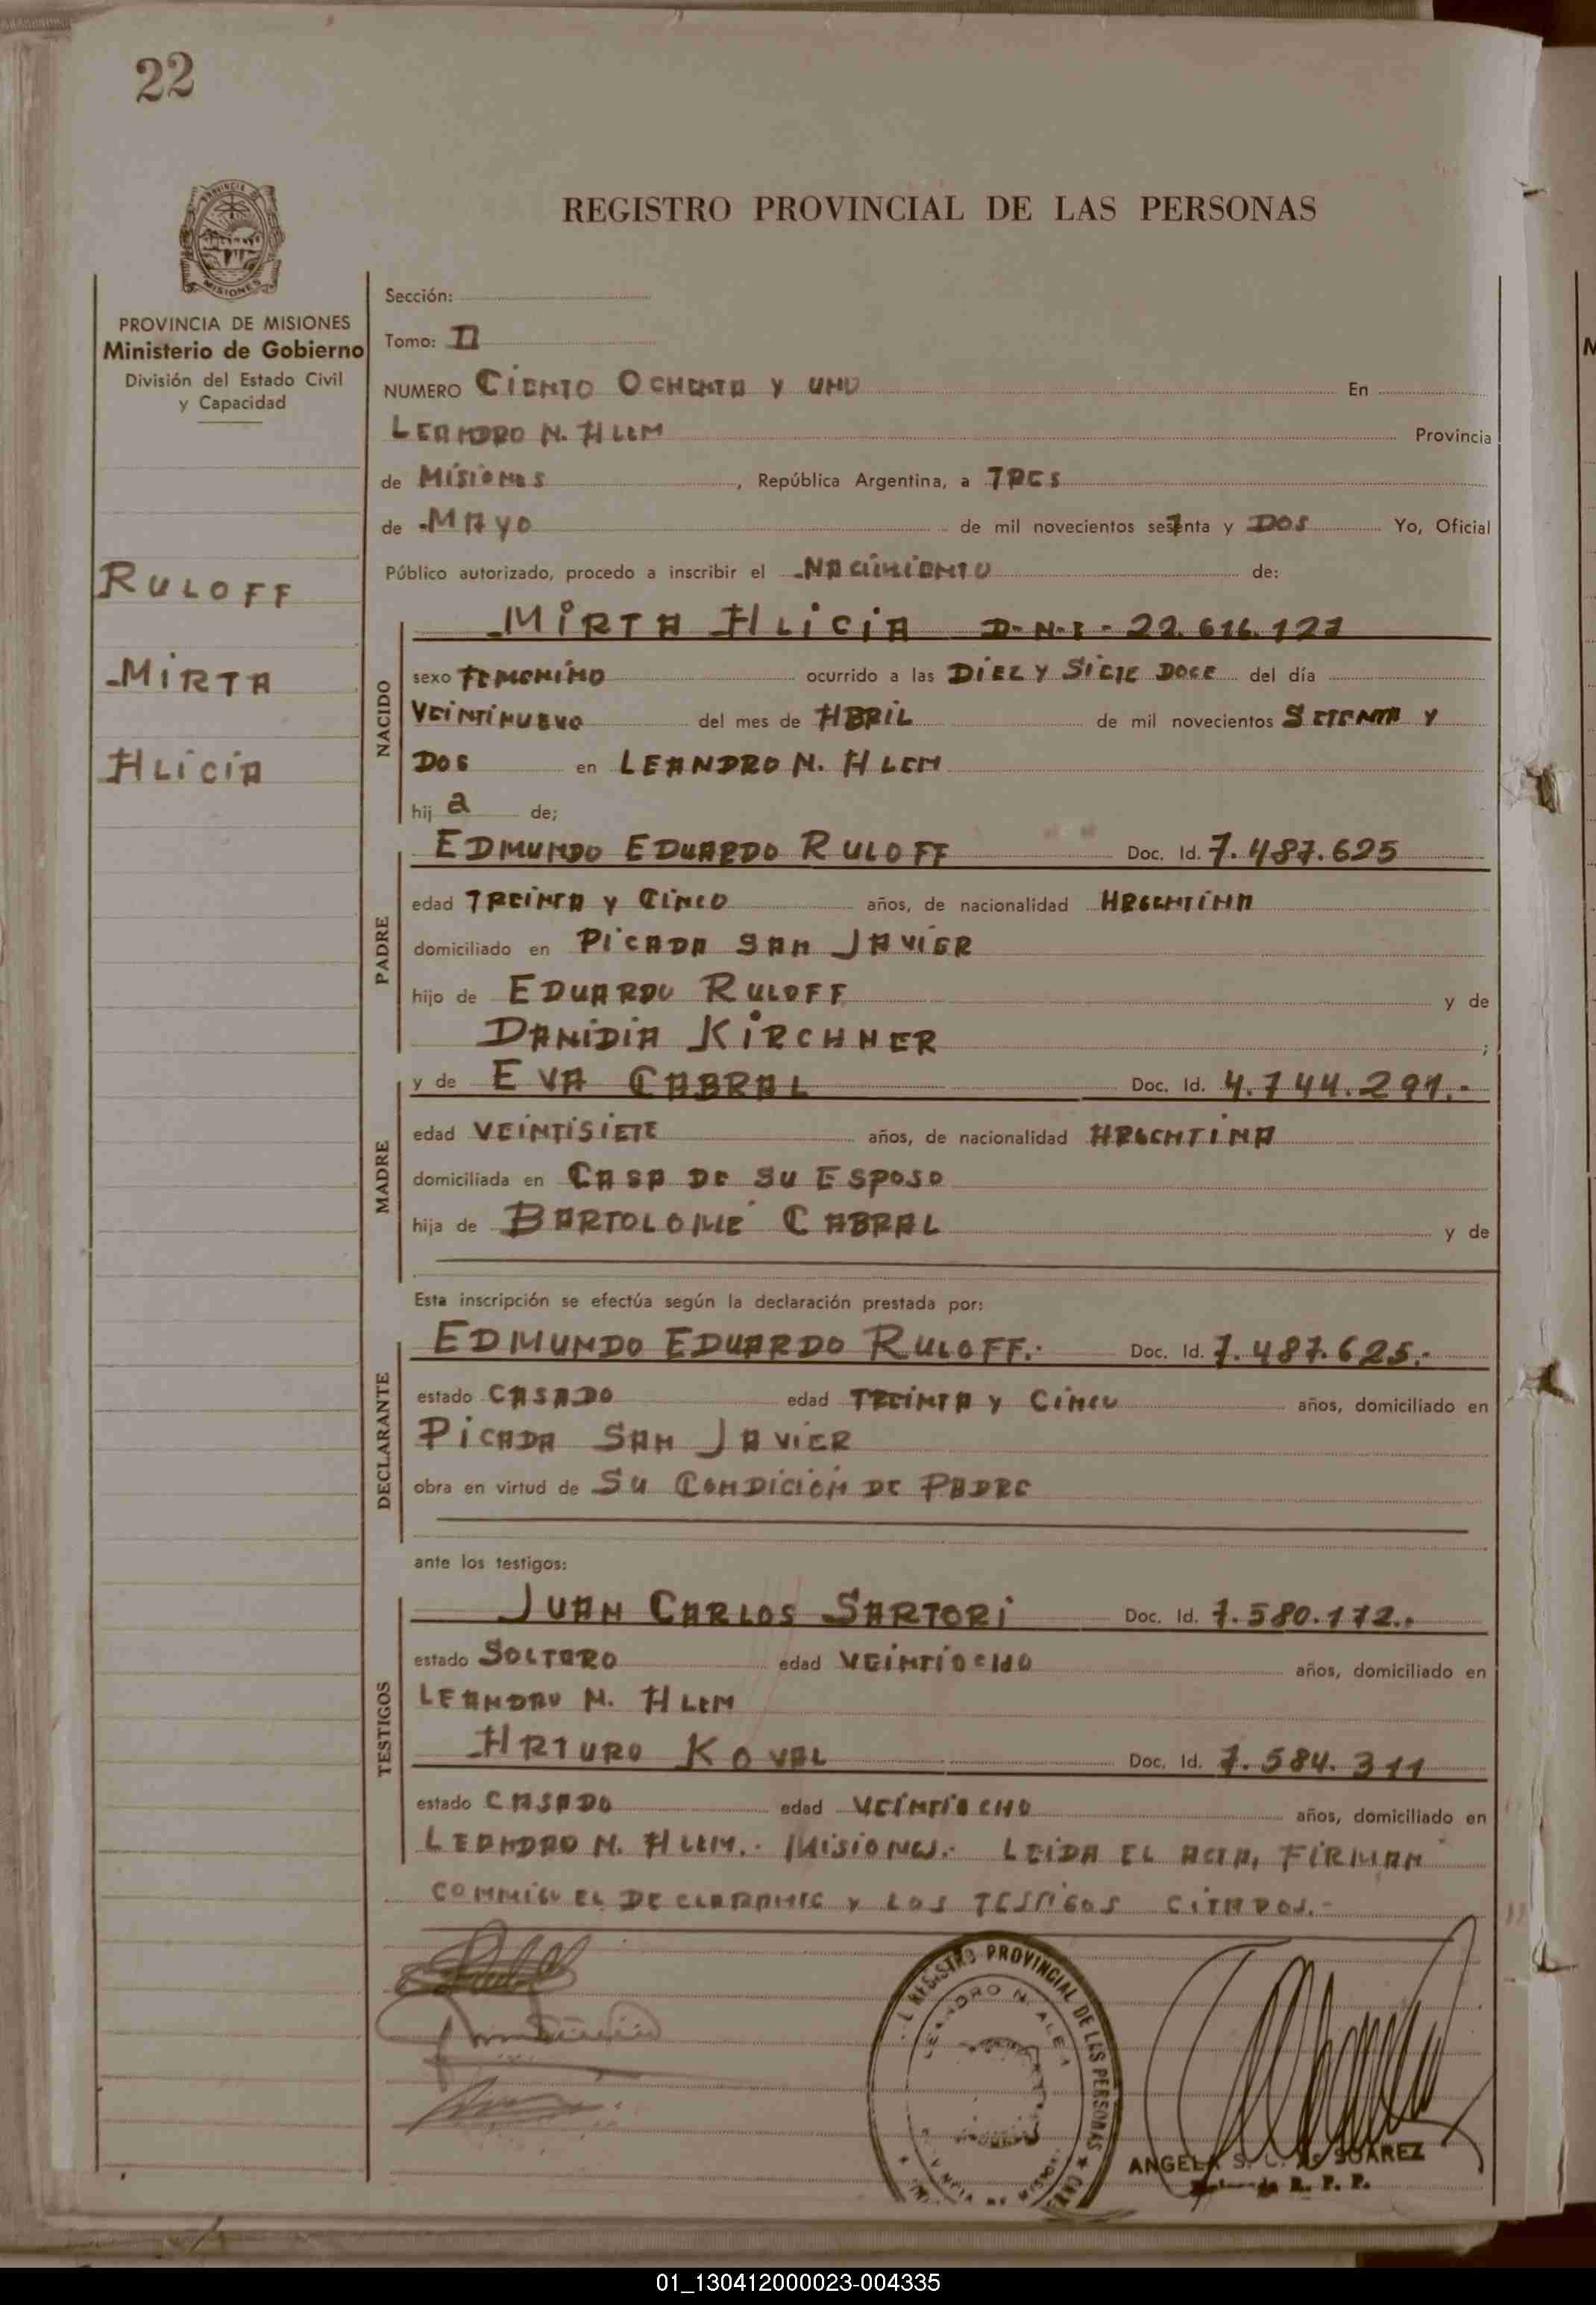 22
REGISTRO PROVINCIAL DE LAS PERSONAS
PROVINCIA DE MISIONES
MISIONES
PROVINCIA DE MISIONES
Ministerio de Gobierno
División del Estado Civil
y Capacidad
RULOFF
MIRTA
ALICIA
Sección:
Tomo: II
NUMERO CIENTO OCHENTA Y UNO En
LEANDRO N. ALEM Provincia
de MISIONES, República Argentina, a TRES
de MAYO de mil novecientos setenta y DOS Yo, Oficial
Público autorizado, procedo a inscribir el NACIMIENTO de:
NACIDO
MIRTA ALICIA D.N.I. 22.616.127
sexo FEMENINO ocurrido a las DIEZ Y SIETE DOCE del día
VEINTINUEVE del mes de ABRIL de mil novecientos SETENTA Y
DOS en LEANDRO N. ALEM
hija de;
PADRE
EDMUNDO EDUARDO RULOFF Doc. Id. 7.487.625
edad TREINTA Y CINCO años, de nacionalidad ARGENTINA
domiciliado en PICADA SAN JAVIER
hijo de EDUARDO RULOFF y de
DANIDIA KIRCHNER ;
MADRE
y de EVA CABRAL Doc. Id. 4.744.291.-
edad VEINTISIETE años, de nacionalidad ARGENTINA
domiciliada en CASA DE SU ESPOSO
hija de BARTOLOMÉ CABRAL y de
Esta inscripción se efectúa según la declaración prestada por:
DECLARANTE
EDMUNDO EDUARDO RULOFF.- Doc. Id. 7.487.625.-
estado CASADO edad TREINTA Y CINCO años, domiciliado en
PICADA SAN JAVIER
obra en virtud de SU CONDICIÓN DE PADRE
ante los testigos:
TESTIGOS
JUAN CARLOS SARTORI Doc. Id. 7.580.172.-
estado SOLTERO edad VEINTIOCHO años, domiciliado en
LEANDRO N. ALEM
ARTURO KOVAL Doc. Id. 7.584.311
estado CASADO edad VEINTIOCHO años, domiciliado en
LEANDRO N. ALEM.- MISIONES.- LEIDA EL ACTA, FIRMAN
CONMIGO EL DECLARANTE Y LOS TESTIGOS CITADOS.-
REGISTRO PROVINCIAL DE LAS PERSONAS
LEANDRO N. ALEM
ANGELA S. SUAREZ
R. P. P.
01_130412000023-004335